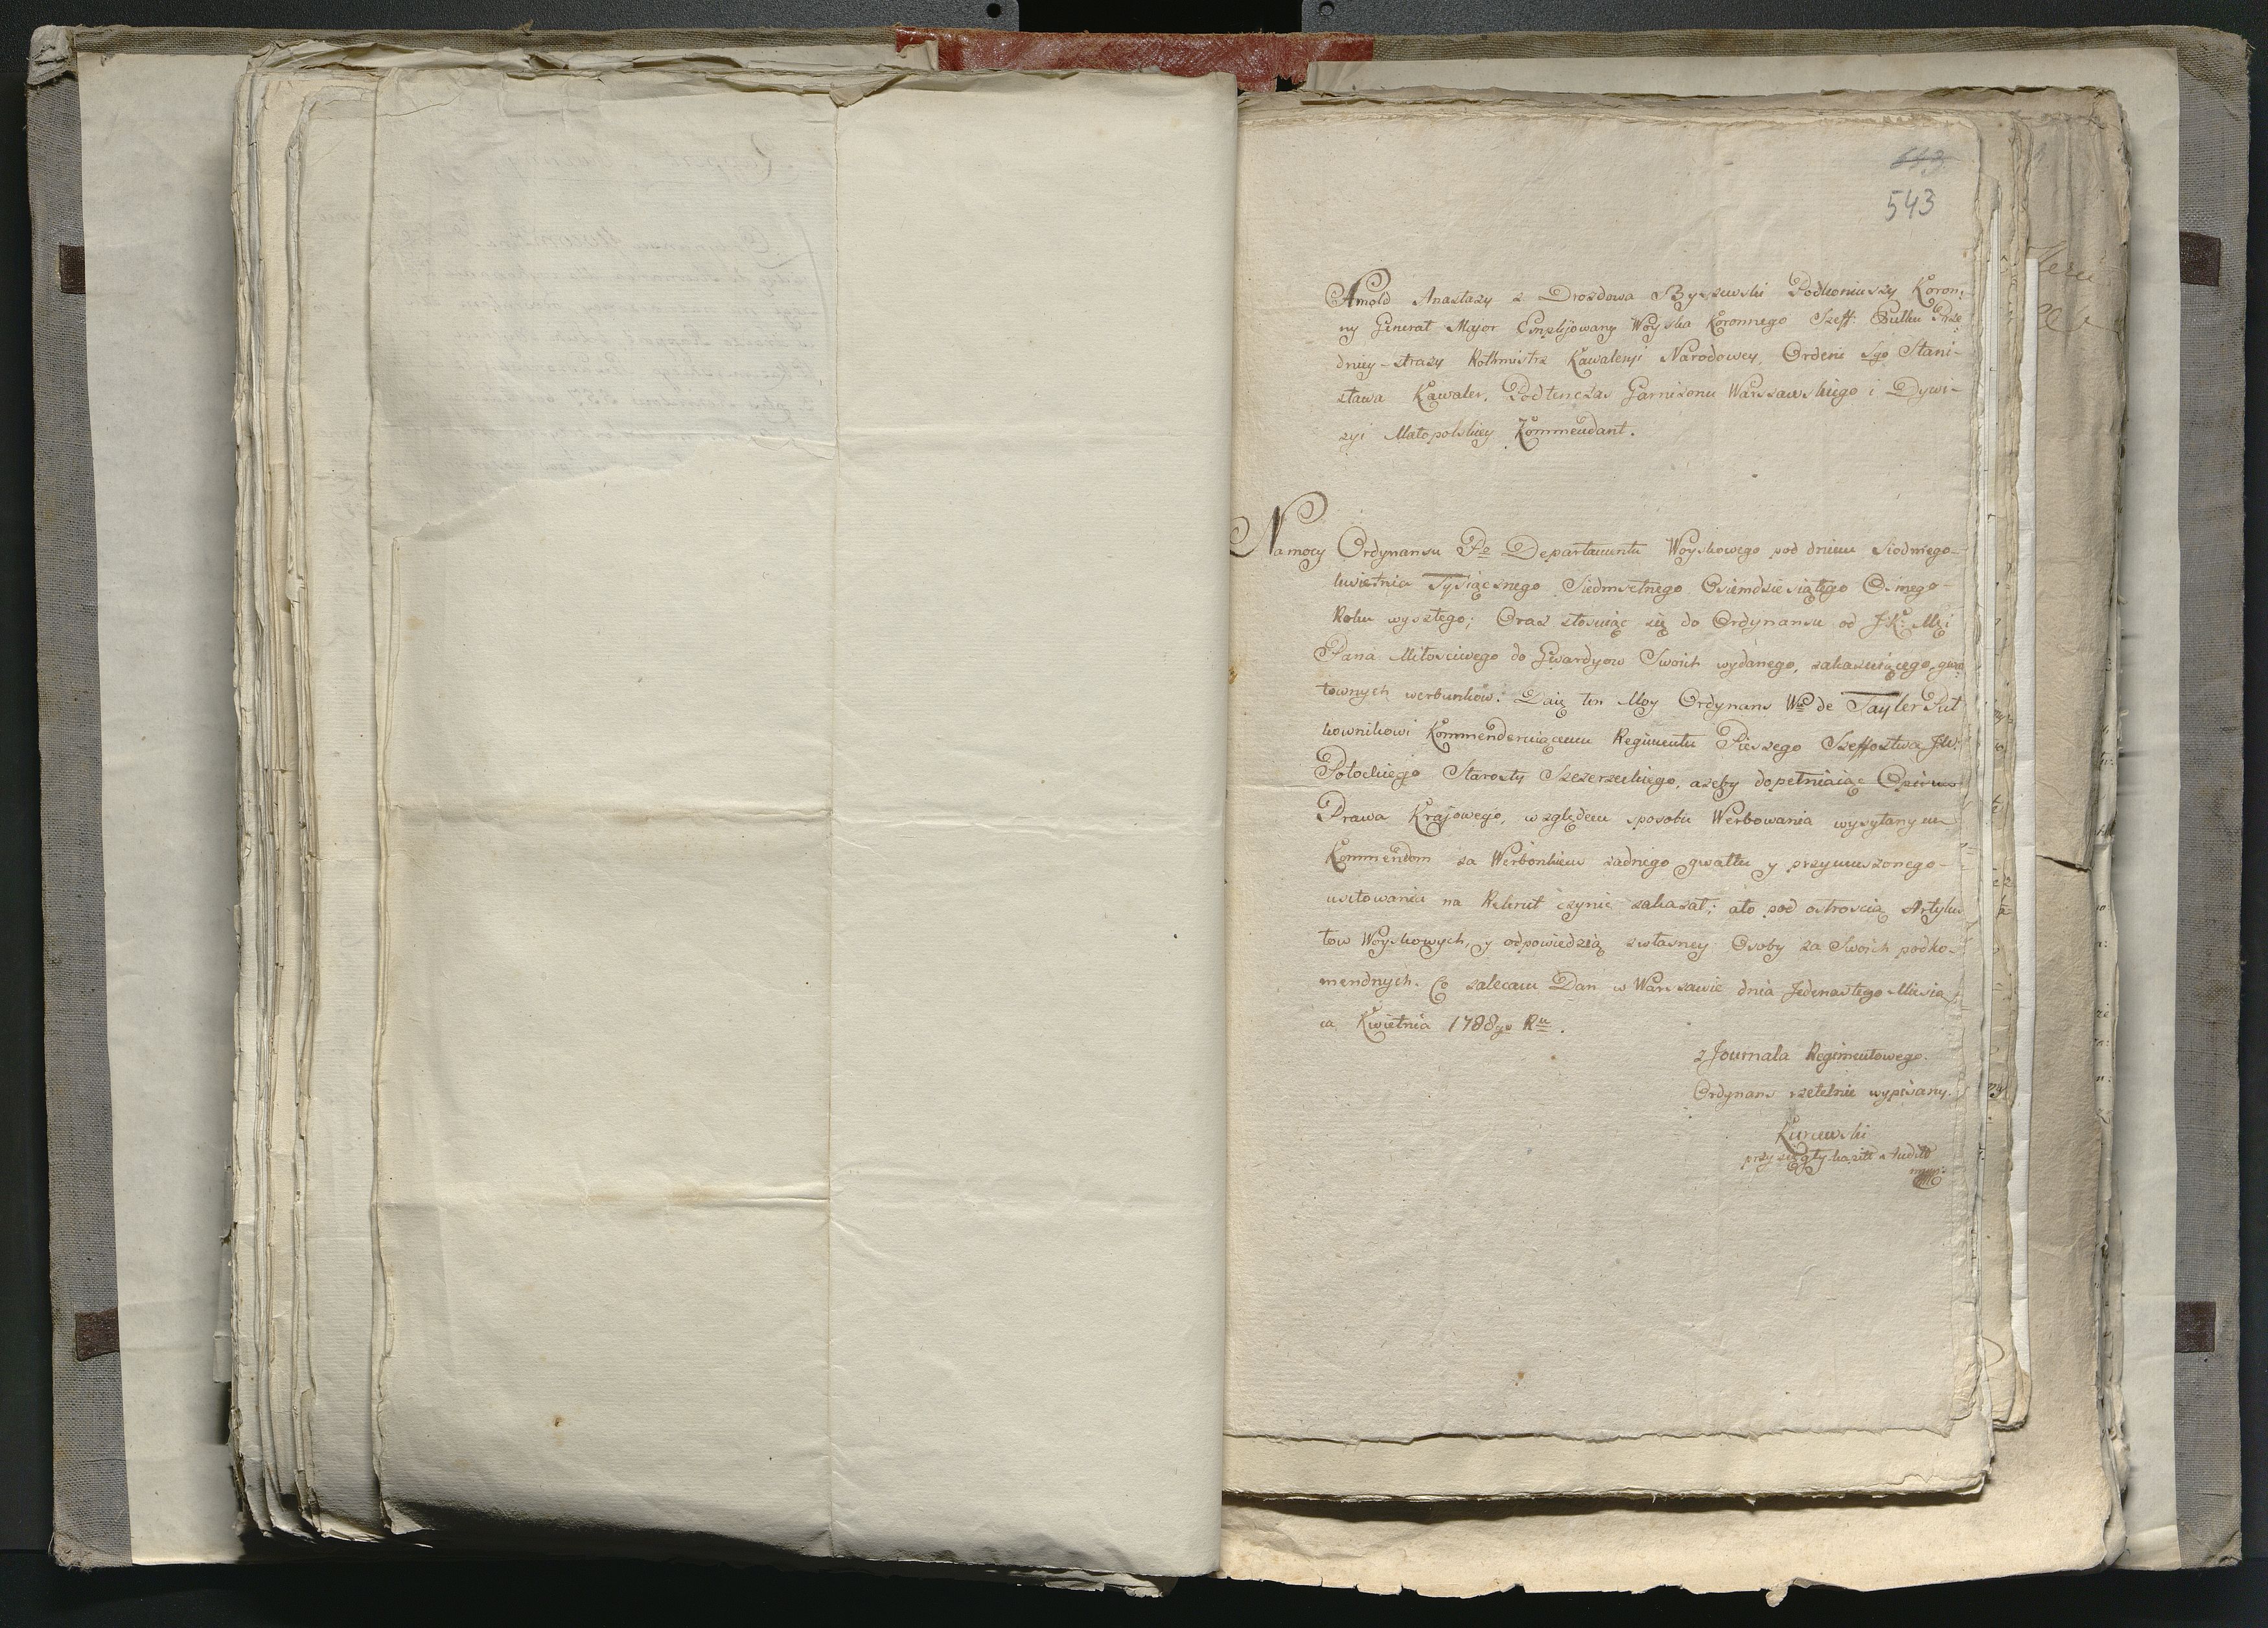 543
Arnold Anastazy z Drozdowa Byszewski Podkoniuszy Koron:
ny Generał Major Emplijowany Woyska Koronnego Szeff Pułku Prze
dniey-straży Rothmistrz Kawaleryi Narodowey, Orderu Sgo Stani-
sława Kawaler, Podtenczas Garnizonu Warszawskiego i Dywi-
zyi Małopolskiey Kommendant.
Na mocy Ordynansu Departamentu Woyskowego pod dniem Siodmego-
kwietnia Tysiącznego Siedmsetnego Osiemdziesiątego Osmego-
Roku wyszłego; Oraz stosuiąc się do Ordynansu od JK: Mci
Pana Miłosciwego do Gwardyow Swoich wydanego, zakazuiącego gwa
townych werbunkow. Daię ten Moy Ordynans de Tayler Puł
kownikowi Kommenderuiącemu Regimentu Pieszego Szeffostwa JW:
Potockiego Starosty Szczerzeckiego, azeby dopełniaiąc
Prawa Krajowego, względem sposobu Werbowania wysyłanym
Kommendom za Werbonkiem zadnego gwałtu y przymuszonego-
usiłowania na Rekrut czynić zakazał; ato pod ostroscią Artyku
łow Woyskowych, y odpowiedzią zwłasney Osoby za Swoich podko-
mendnych. Co zalecam Dan w Warszawie dnia Jedenastego Miesią
ca Kwietnia 1788go Ru.
z Journala Regimentowego.
Ordynans rzetelnie wypisany.
przysięgły